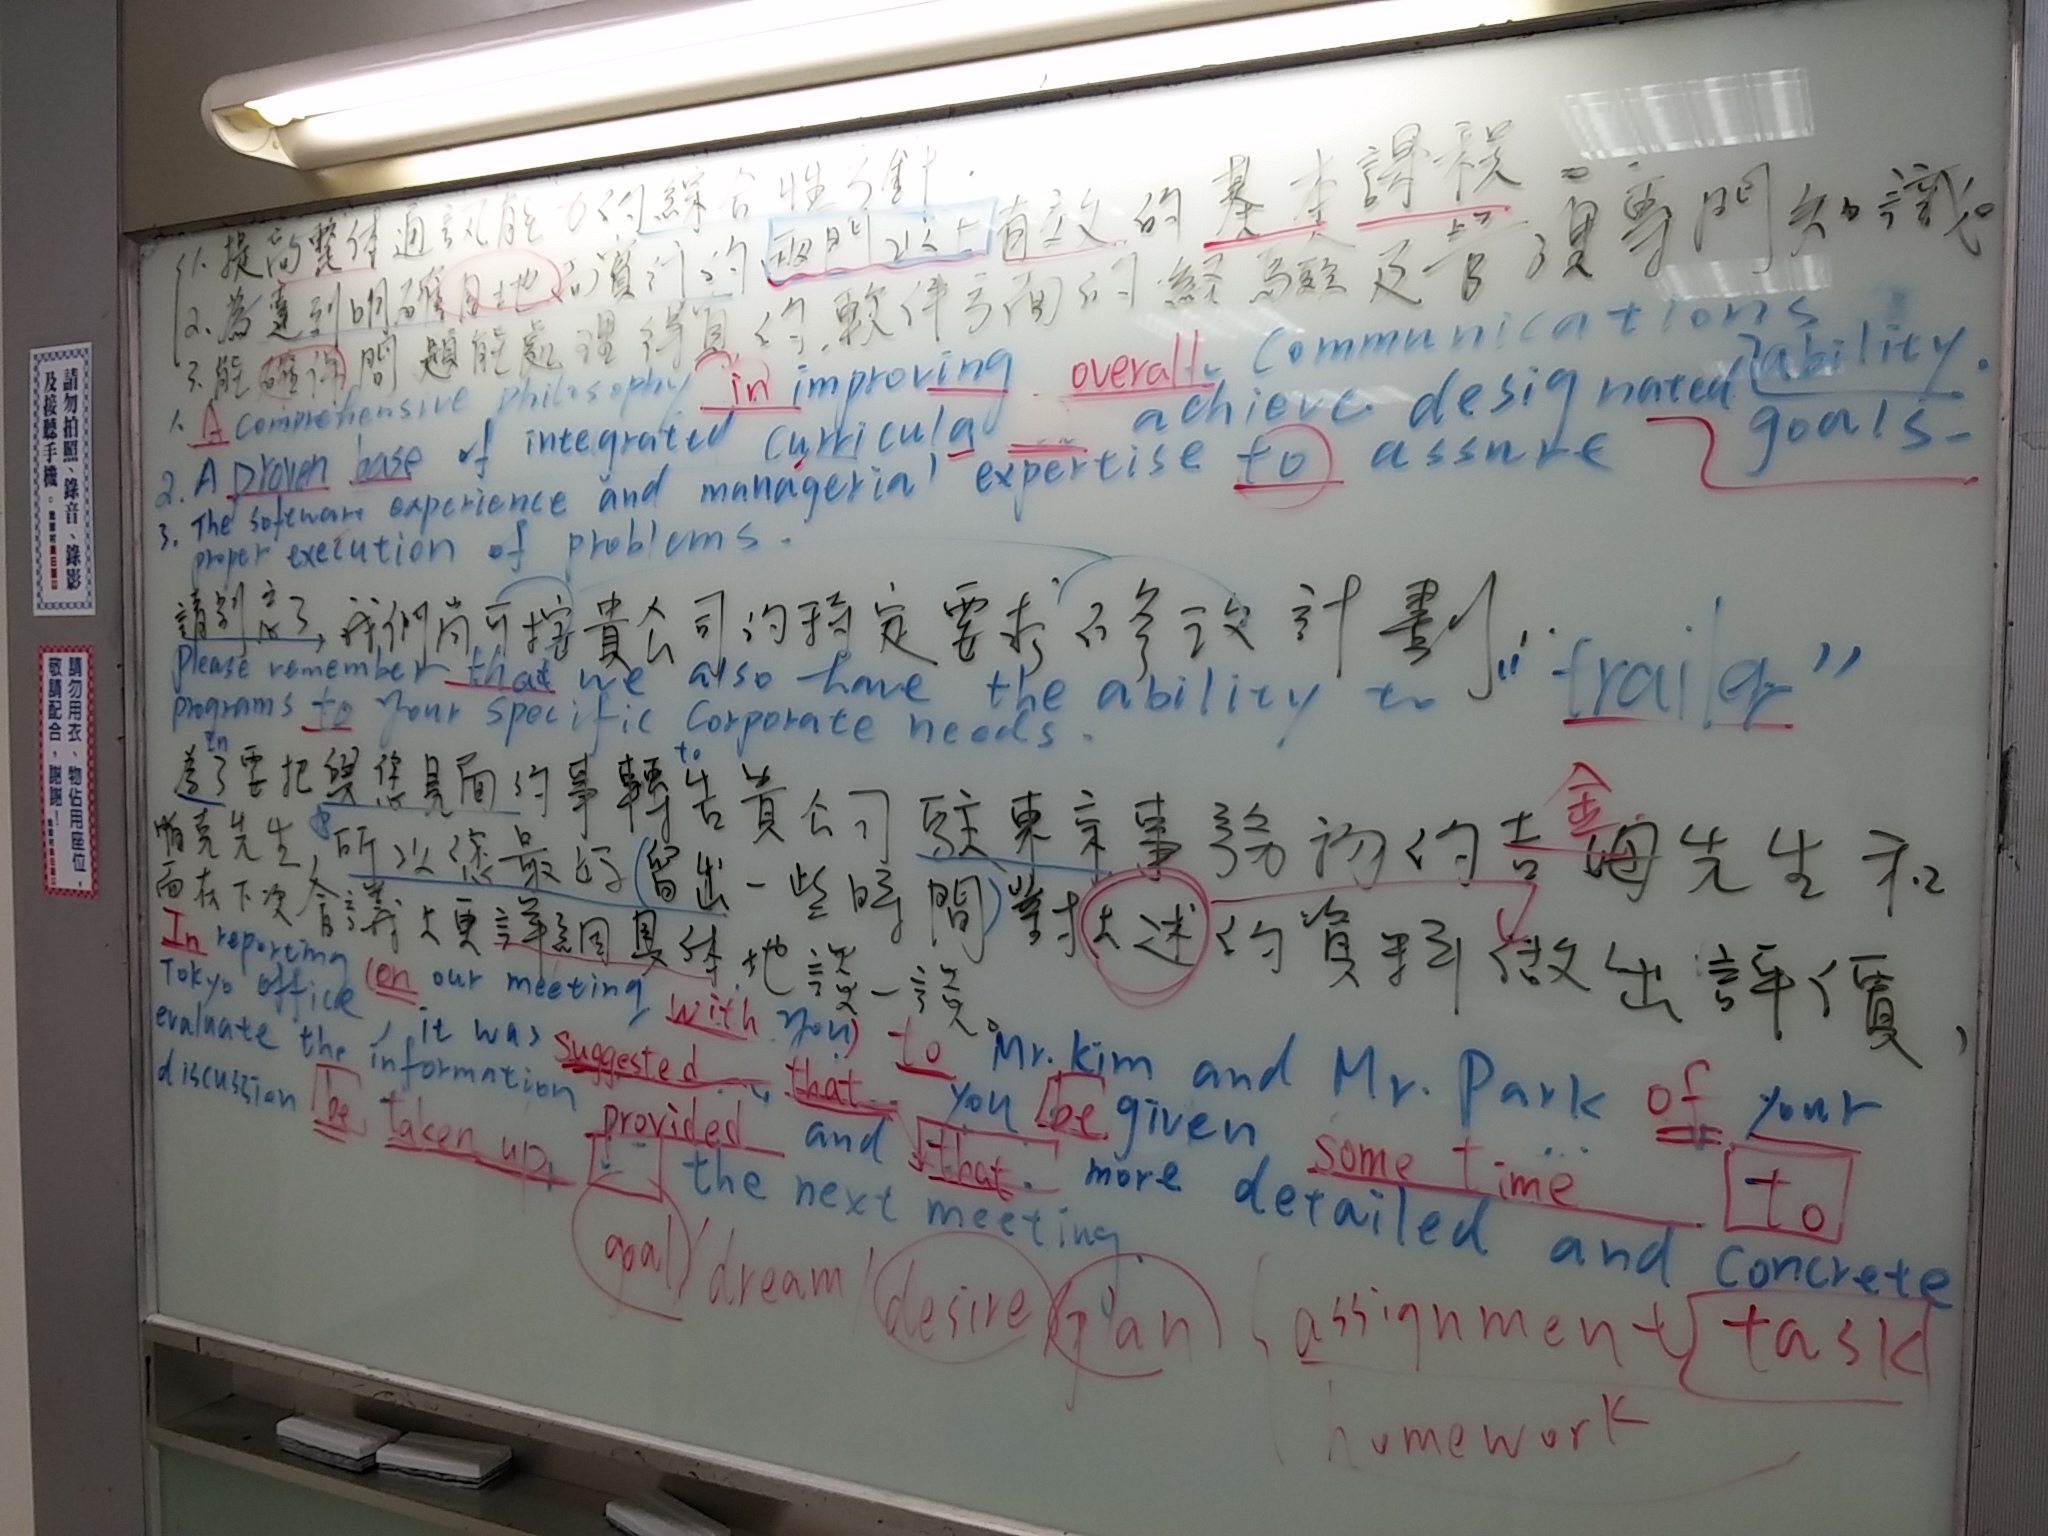 1. 提高整体通訊能力的綜合性方針.
2. 為達到明確目地而實行的兩門以上有效的基本課程
3. 能確保問題能處理得宜的軟件方面的經驗及管理專門知識。
1. A comprehensive philosophy in improving overall communications ability.
2. A proven base of integrated curricula achieve designated goals-
3. The software experience and managerial expertise to assure
proper execution of problems.
請別忘了, 我們尚可按貴公司的特定要求修改計劃
Please remember that we also have the ability to "trailer"
programs to your specific corporate needs.
為了要把與您見面的事轉告貴公司駐東京事務所的吉姆先生和
In to 金
帕克先生, 所以您最好(留出一些時間)對上述的資料做出評價,
而在下次會議上更詳細具体地談一談。
In reporting (on our meeting with you) to Mr. Kim and Mr. Park of your
Tokyo office, it was suggested that you be given some time to
evaluate the information provided and that more detailed and concrete
discussion be taken up the next meeting.
goal/dream/desire plan assignment task
homework
請勿拍照、錄音、錄影
及接聽手機。
請勿用衣、物佔用座位,
敬請配合,謝謝!